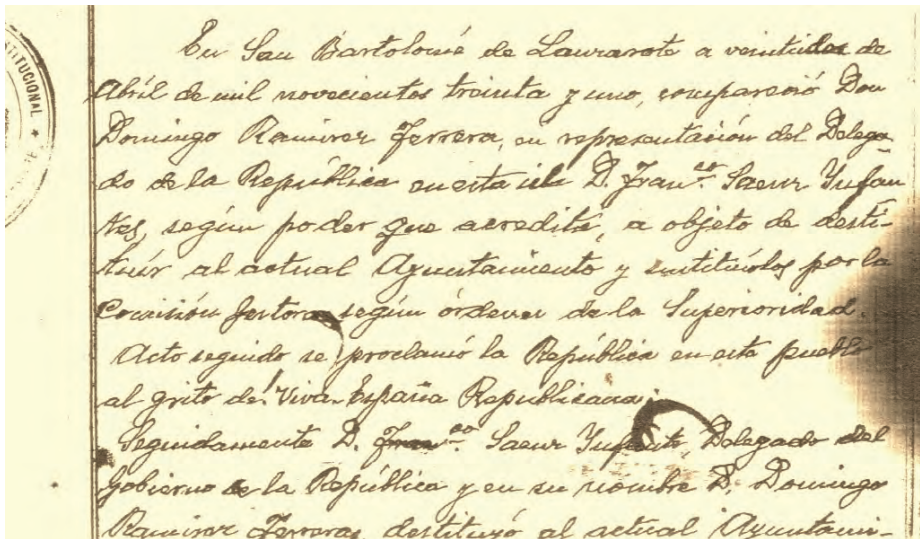 TUCIONAL ★
En San Bartolomé de Lanzarote a veintidos de
Abril de mil novecientos treinta y uno, compareció Don
Domingo Ramirez Ferrera, en representación del Delega-
do de la República en esta isla D. Franco. Saenz Infan
tes, según poder que acredita, a objeto de desti-
tuír al actual Ayuntamiento y sustituírlos por la
Comisión Gestora, según órdenes de la Superioridad.
Acto seguido se proclamó la República en este pueblo
al grito de ¡Viva España Republicana!
Seguidamente D. Franco. Saenz Infante, Delegado del
Gobierno de la República y en su nombre D. Domingo
Ramirez Ferrera, destituyó al actual Ayuntami-